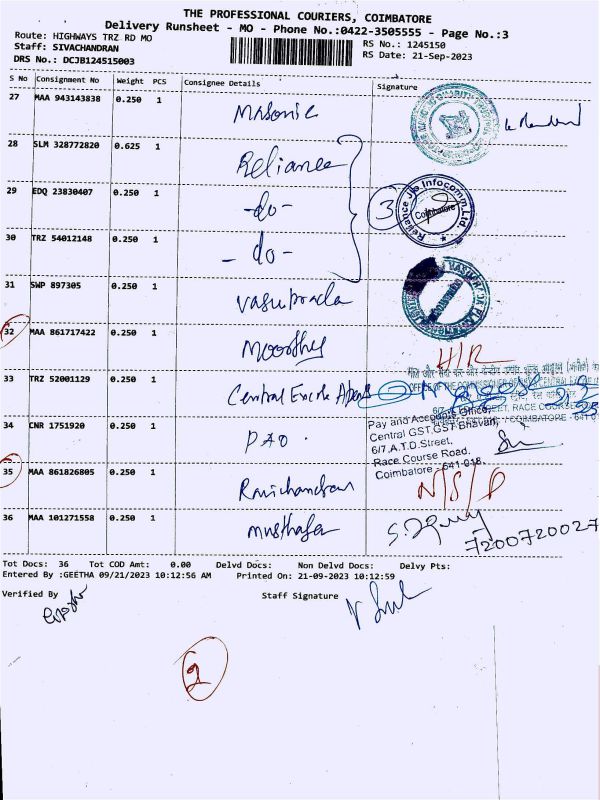 THE PROFESSIONAL COURIERS, COIMBATORE
Delivery Runsheet - MO - Phone No.:0422-3505555 - Page No.:3
Route: HIGHWAYS TRZ RD MO
RS No.: 1245150
Staff: SIVACHANDRAN
RS Date: 21-Sep-2023
DRS No.: DCJB124515003
S No Consignment No Weight PCS Consignee Details Signature
27 MAA 943143838 0.250 1 Masonic
28 SLM 328772820 0.625 1 Reliance
29 EDQ 23830407 0.250 1 -do-
3 Reliance Jio Infocomm Ltd. Coimbatore
30 TRZ 54012148 0.250 1 -do-
31 SWP 897305 0.250 1 Vasuprada
32 MAA 861717422 0.250 1 Moorthy H/R
33 TRZ 52001129 0.250 1 Central Excise
34 CNR 1751920 0.250 1 PAO
Pay and Accounts Office,
Central GST,GST Bhavan,
6/7,A.T.D.Street,
Race Course Road,
Coimbatore - 641 018.
35 MAA 861826805 0.250 1 Ravichandran N/S/P
36 MAA 101271558 0.250 1 Musthafa
7200720027
Tot Docs: 36 Tot COD Amt: 0.00 Delvd Docs: Non Delvd Docs: Delvy Pts:
Entered By :GEETHA 09/21/2023 10:12:56 AM Printed On: 21-09-2023 10:12:59
Verified By Staff Signature
2